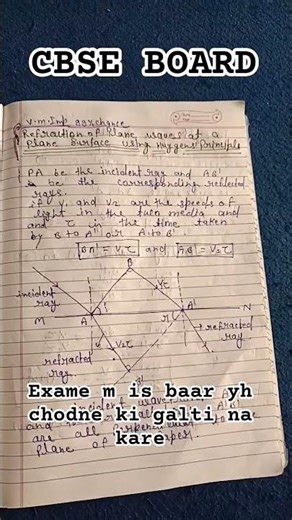 CBSE BOARD
V.m.Imp corchance
Refraction of Plane waves at a
Plane Surface using Huygens Principle
PA be the incident ray and AB'
be the corresponding reflected
rays.
if V₁ and V₂ are the speeds of
light in the two media and
and τ is the time taken
by B to A' or A to B'.
BA' = V₁τ and AB' = V₂τ
B
incident
ray
V₁τ
M
A
A'
N
r
V₂τ
refracted
ray
refracted
ray
B'
Exame m is baar yh
chodne ki galti na
kare
incident
and
are all
Plane of